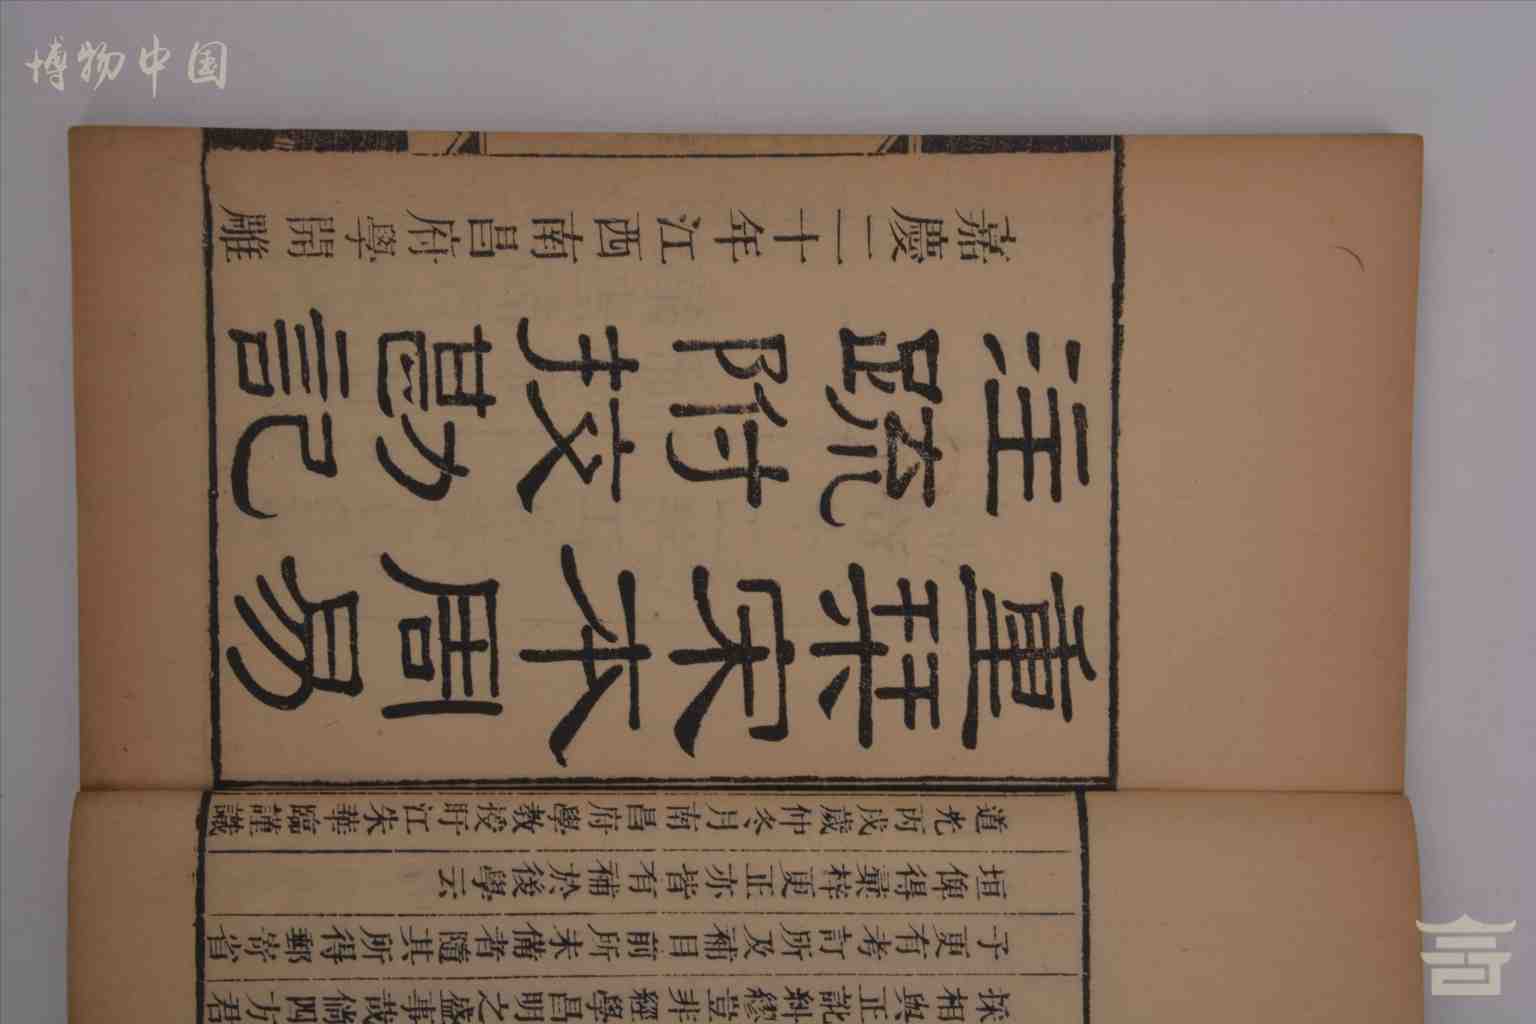 博物中国
採相與正訛糾繆豈非經學昌明之盛事哉倘四方君
子更有考訂所及補目前所未備者隨其所得郵寄省
垣俾得彙梓更正亦皆有補於後學云
道光丙戌歲仲冬月南昌府學教授盱江朱華臨謹識
重栞宋本周易
注疏附挍勘記
嘉慶二十年江西南昌府學開雕